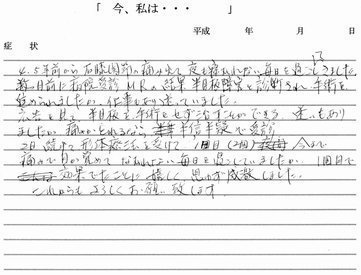 「 今、私は・・・ 」
平成 年 月 日
症 状
4.5年前から右膝関節の痛みで夜も寝れない毎日を過ごしてきました。
前に病院受診MRの結果半月板障害と診断され手術を
進められましたが、仕事もあり迷っていました。
広告を見て半月板を手術をせず治すことができる、迷いもあり
ましたが、痛みがとれるなら半信半疑で受診
2日続けて形体療法を受けて1回目(2回)今まで
痛みで目が覚めてねむれない毎日を過していましたが、1回目で
効果でたことに嬉しく、思わず感激しました。
これからもよろしくお願い致します